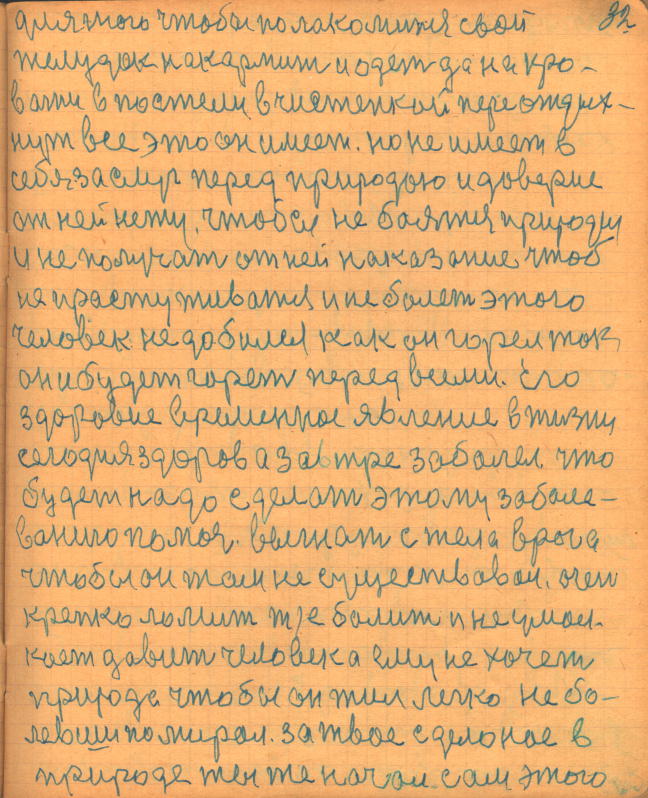 32
для того чтобы полакомится свой
желудок накармит и одет да на кро-
вати в постели в чистенкой переотдых-
нут все это он имеет. но не имеет в
себя заслуг перед природою и доверие
от ней нету. чтобы не боятся природы
и не получат от ней наказание чтоб
не прастуживатся и не болет этого
человек не добился как он горел так
он и будет горет перед всеми. Его
здоровие временное явление в жизни
сегодня здоров а завтре заболел. что
будет надо сделат этому заболе-
ванию помоч. выгнат с тела врага
чтобы он там не существовал. очен
крепко ломит тже болит и не умол-
кает давит человека ему не хочет
природа чтобы он жил легко не бо-
левши помирал. за твое сделоное в
природе ты же начал сам этого